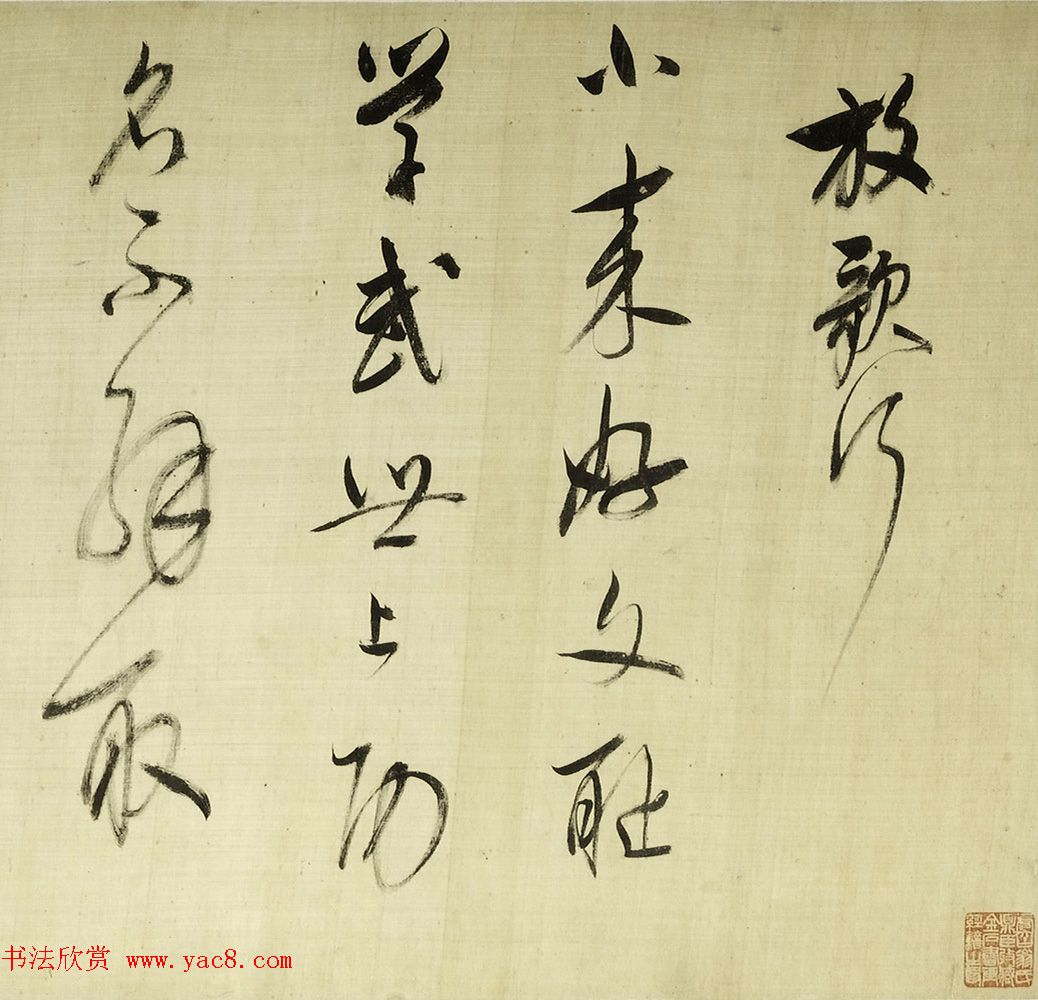 放歌行
小来好文耻
学武世上功
名不解取
书法欣赏 www.yac8.com